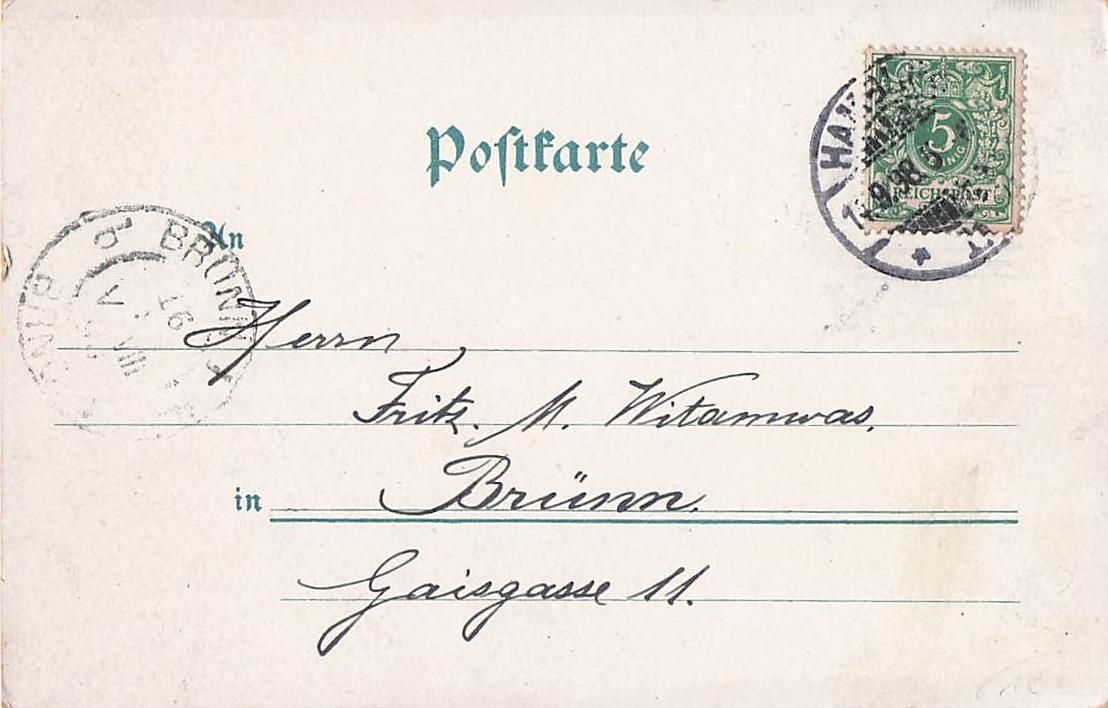 Postkarte
5
REICHSPOST
9.98.
An
BRÜNN
Herrn
Fritz. M. Witamwas.
in Brünn.
Gaisgasse 11.